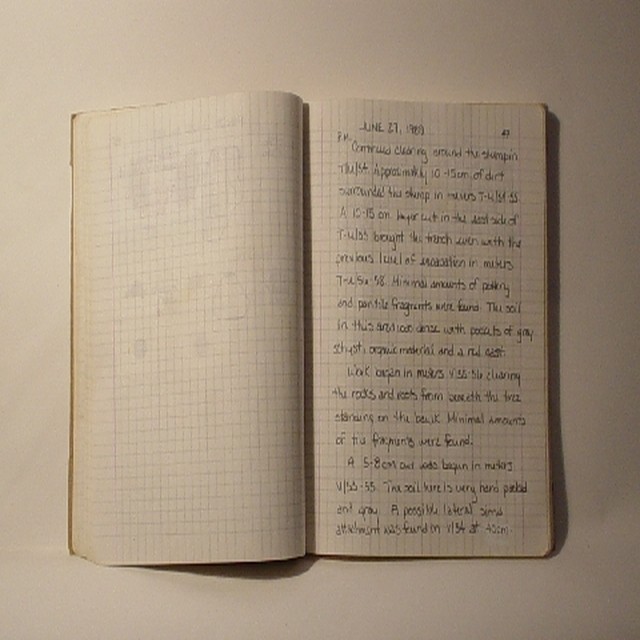 JUNE 27, 1980 47
P.M.
Continued clearing around the stump in
T-U/54. Approximately 10-15cm of dirt
surrounded the stump in meters T-U/54-55.
A 10-15 cm layer cut in the east side of
T-U/55 brought the trench even with the
previous level of excavation in meters
T-U/56-58. Minimal amounts of pottery
and pantile fragments were found. The soil
in this area was dense with pockets of gray
schyst, organic material and a red cast.
Work began in meters V/55-56 clearing
the rocks and roots from beneath the tree
standing on the baulk. Minimal amounts
of tile fragments were found.
A 5-8cm cut was begun in meters
V/53-55. The soil here is very hard packed
and gray. A possible lateral sima
attachment was found in V/54 at